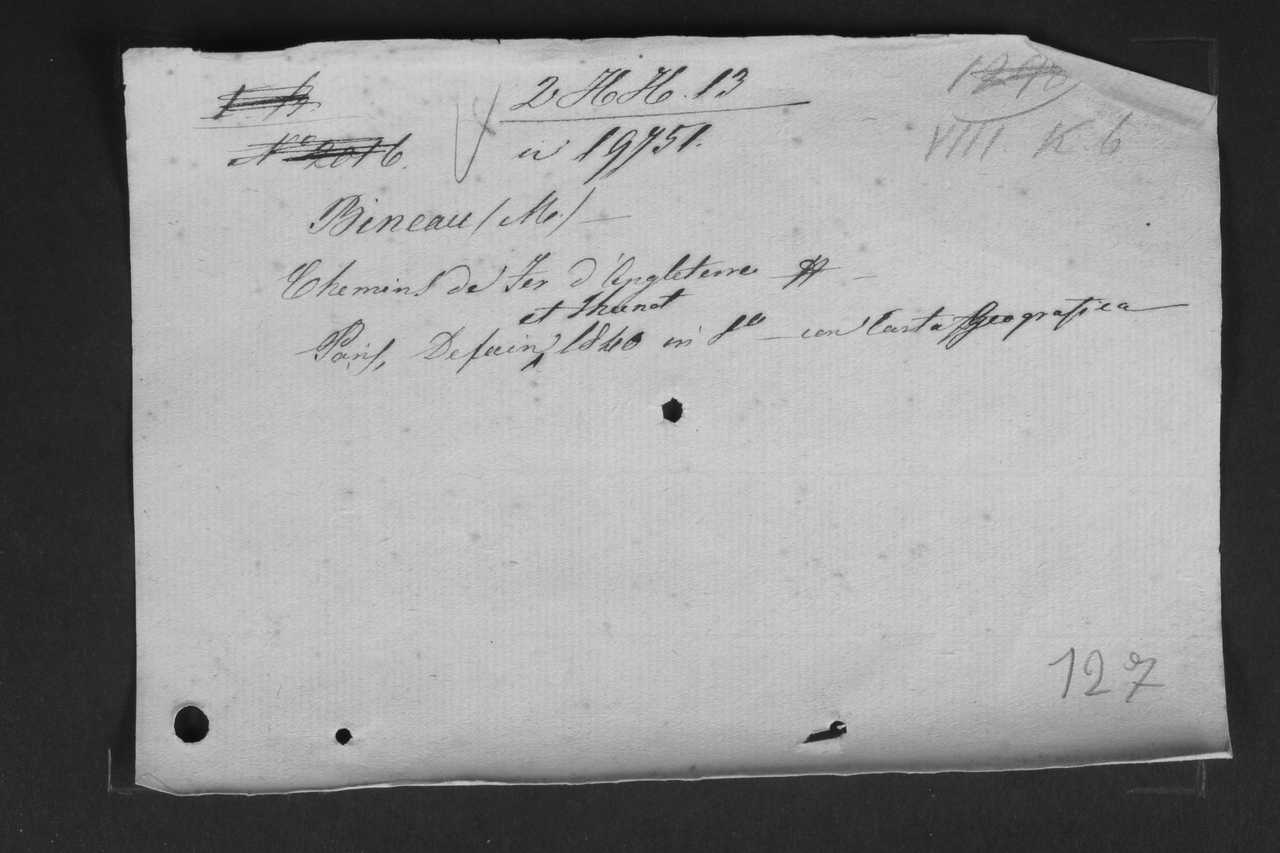 2 HH. 13
N° 2016.
in 19751.
VIII. K. 6
Bineau (M.) —
Chemins de Fer d'Angleterre —
et Thunot
Paris, Defain, 1840 in 8° — con Carta Geografica —
127